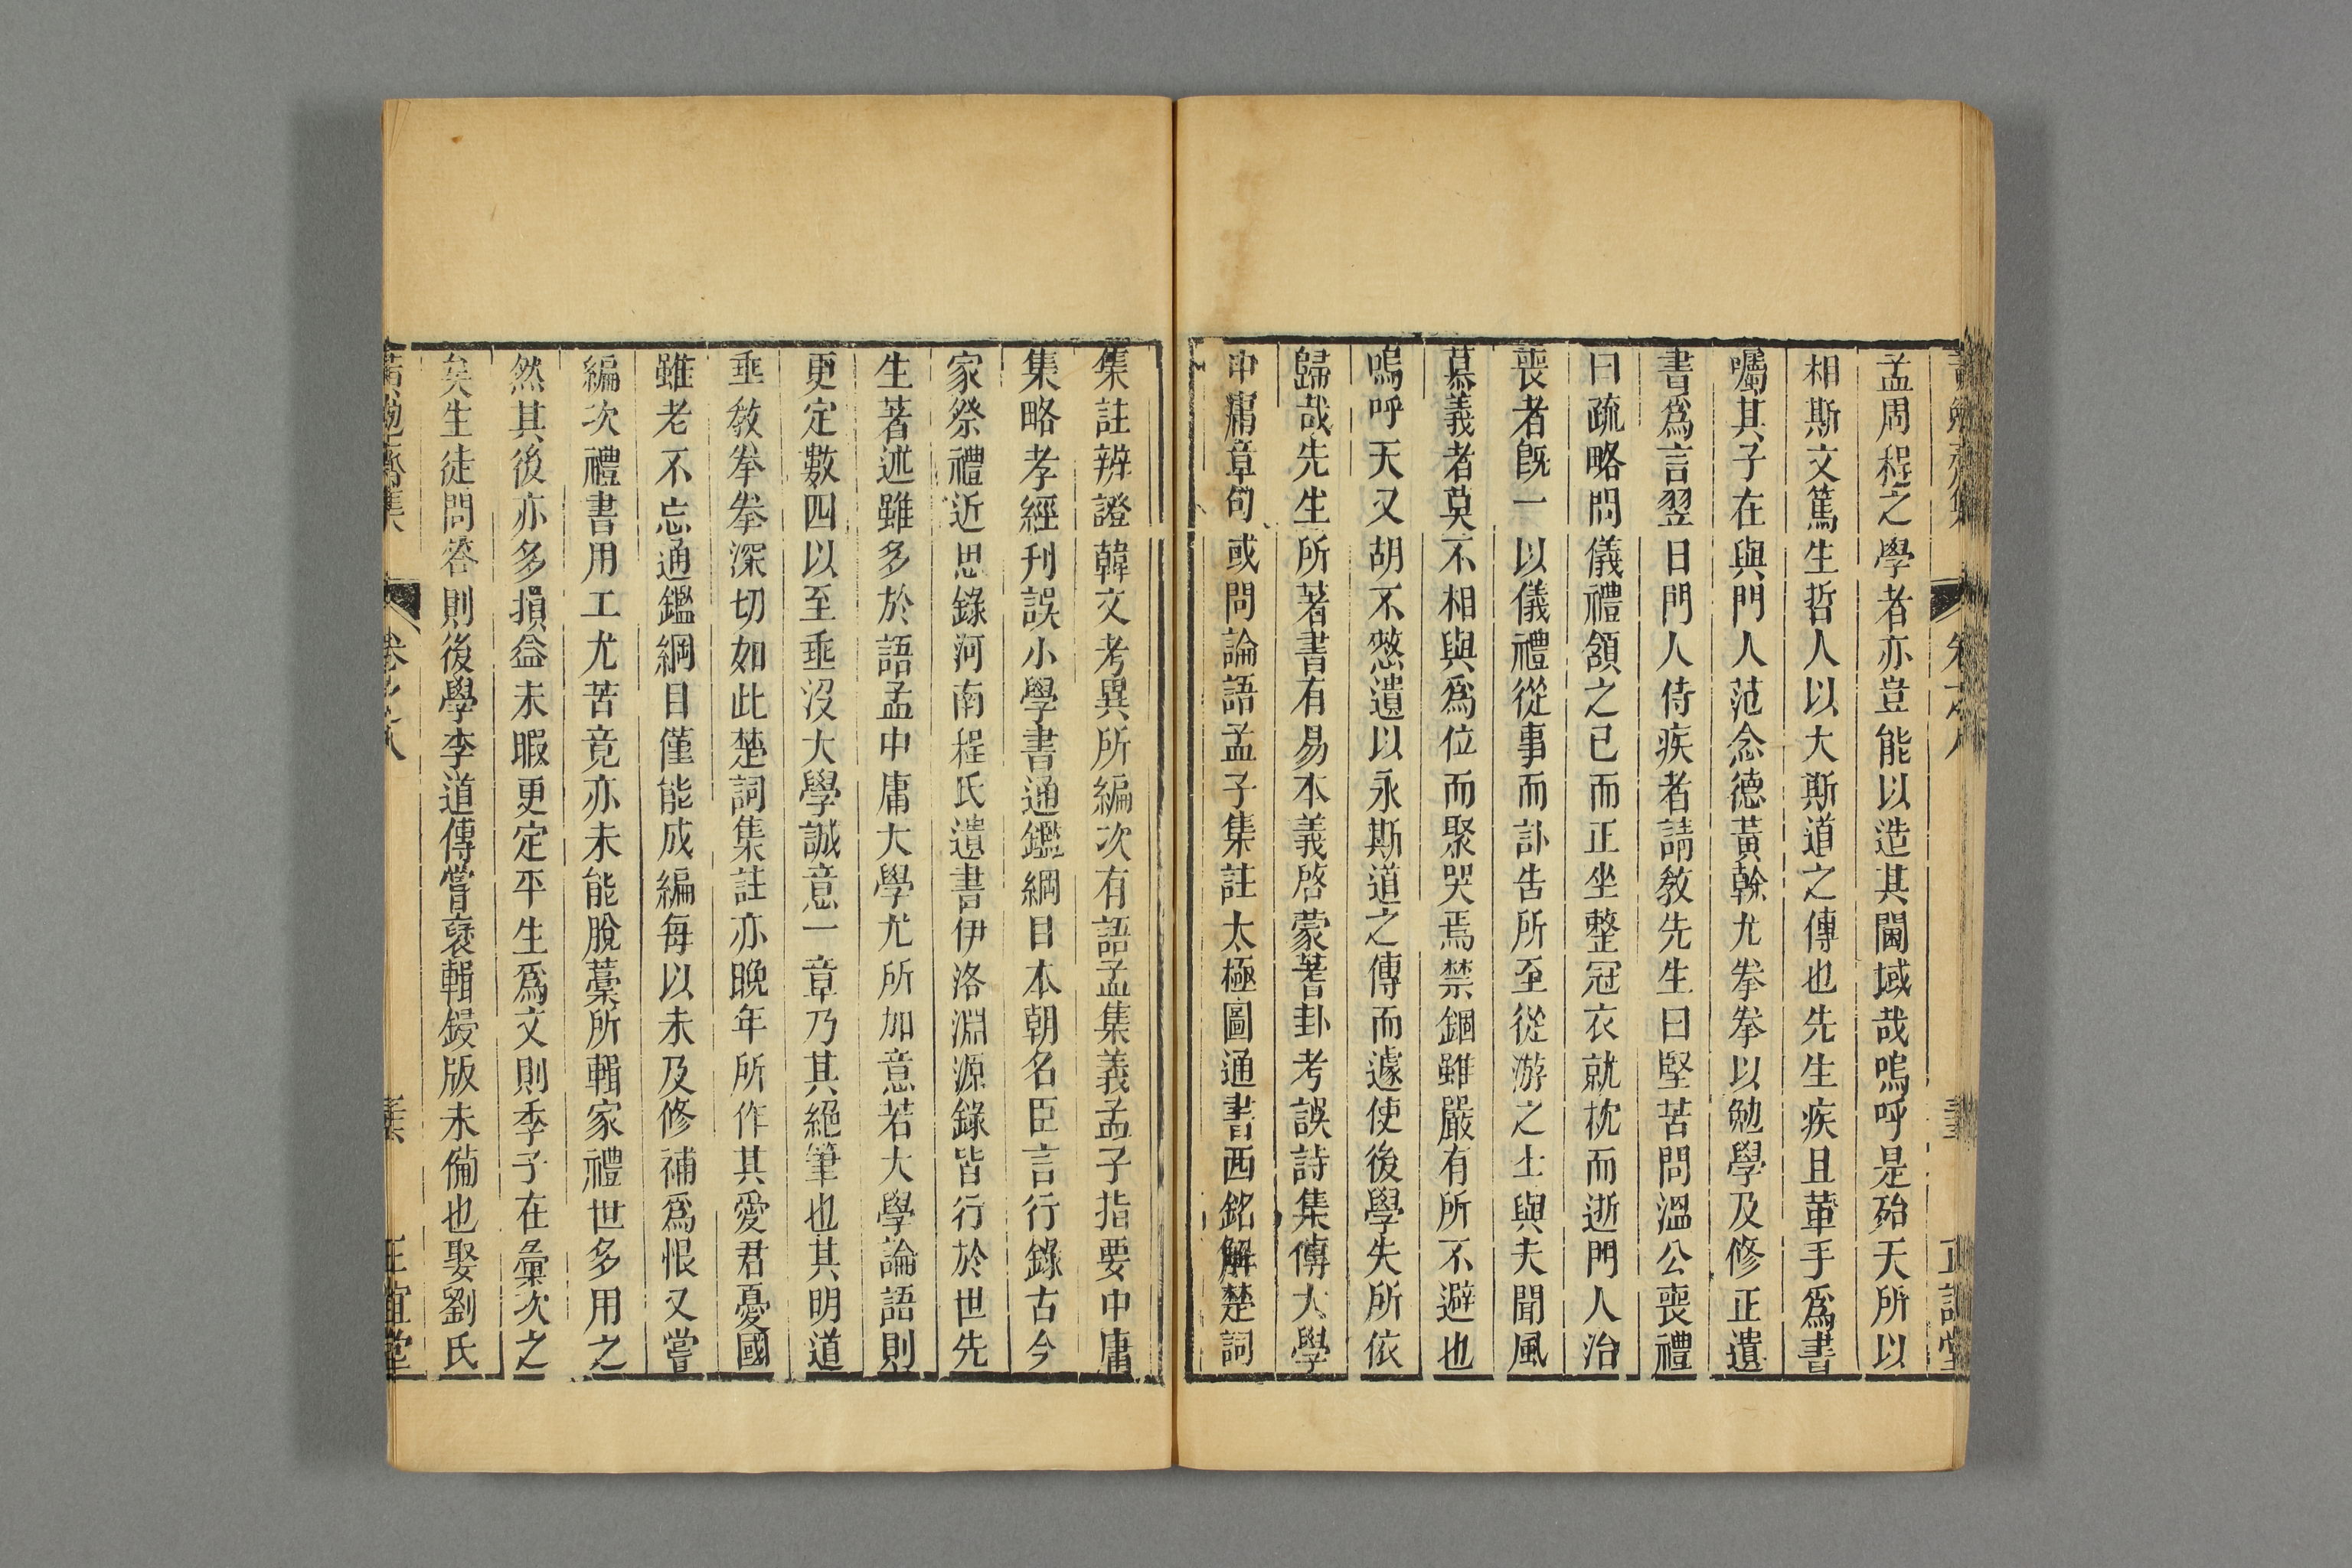 孟周程之學者亦豈能以造其閫域哉嗚呼是殆天所以
相斯文篤生哲人以大斯道之傳也先生疾且革手爲書
囑其子在與門人范念德黃榦尤拳拳以勉學及修正遺
書爲言翌日門人侍疾者請敎先生曰堅苦問溫公喪禮
曰疏略問儀禮頷之已而正坐整冠衣就枕而逝門人治
喪者旣一以儀禮從事而訃告所至從游之士與夫聞風
慕義者莫不相與爲位而聚哭焉禁錮雖嚴有所不避也
嗚呼天又胡不憗遺以永斯道之傳而遽使後學失所依
歸哉先生所著書有易本義啓蒙蓍卦考誤詩集傳大學
中庸章句或問論語孟子集註太極圖通書西銘解楚詞
集註辨證韓文考異所編次有語孟集義孟子指要中庸
集略孝經刊誤小學書通鑑綱目本朝名臣言行錄古今
家祭禮近思錄河南程氏遺書伊洛淵源錄皆行於世先
生著述雖多於語孟中庸大學尤所加意若大學論語則
更定數四以至垂沒大學誠意一章乃其絕筆也其明道
垂敎拳拳深切如此楚詞集註亦晩年所作其愛君憂國
雖老不忘通鑑綱目僅能成編每以未及修補爲恨又嘗
編次禮書用工尤苦竟亦未能脫藁所輯家禮世多用之
然其後亦多損益未暇更定平生爲文則季子在彙次之
矣生徒問答則後學李道傳嘗裒輯鋟版未備也娶劉氏
黃勉齋集 卷之八 正誼堂